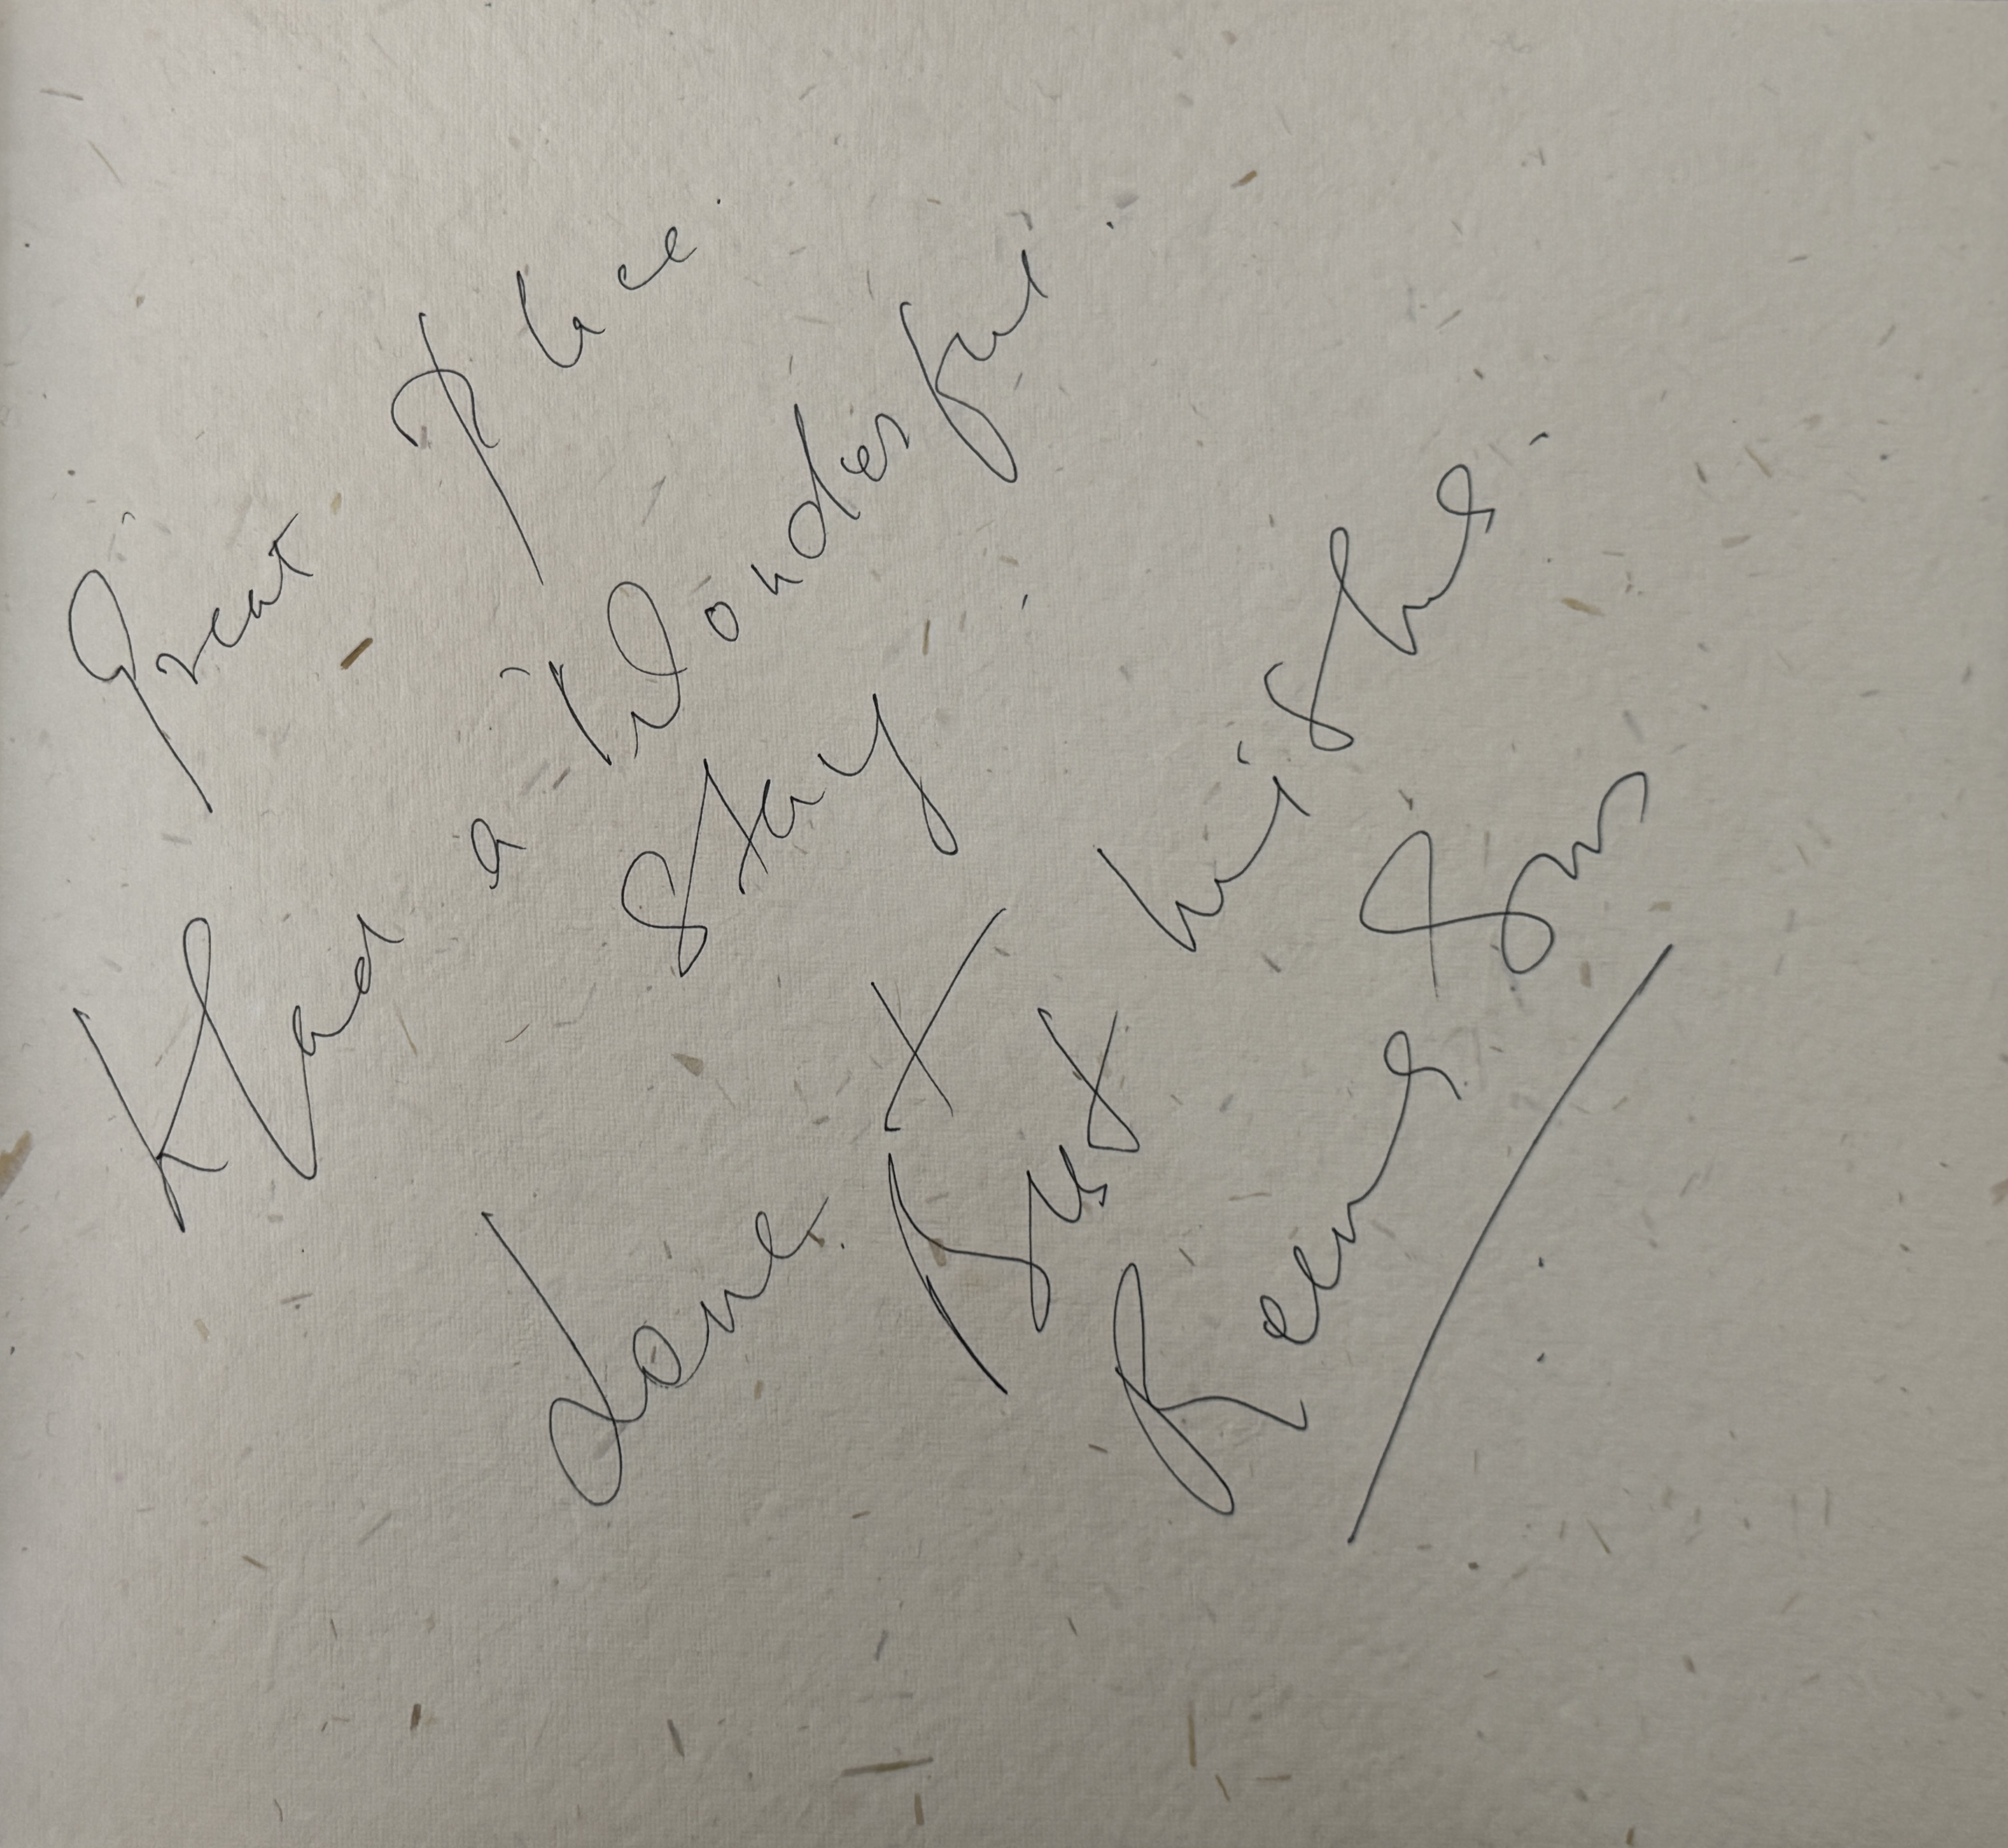 Great Place.
Had a Wonderful
Stay.
Love +
Best wishes.